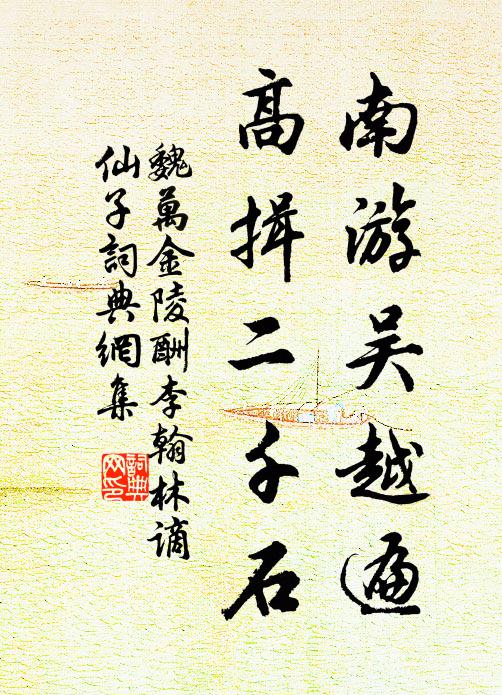 南游吴越遍
高揖二千石
魏萬金陵酬李翰林謫
仙子詞典網集
詞典网印